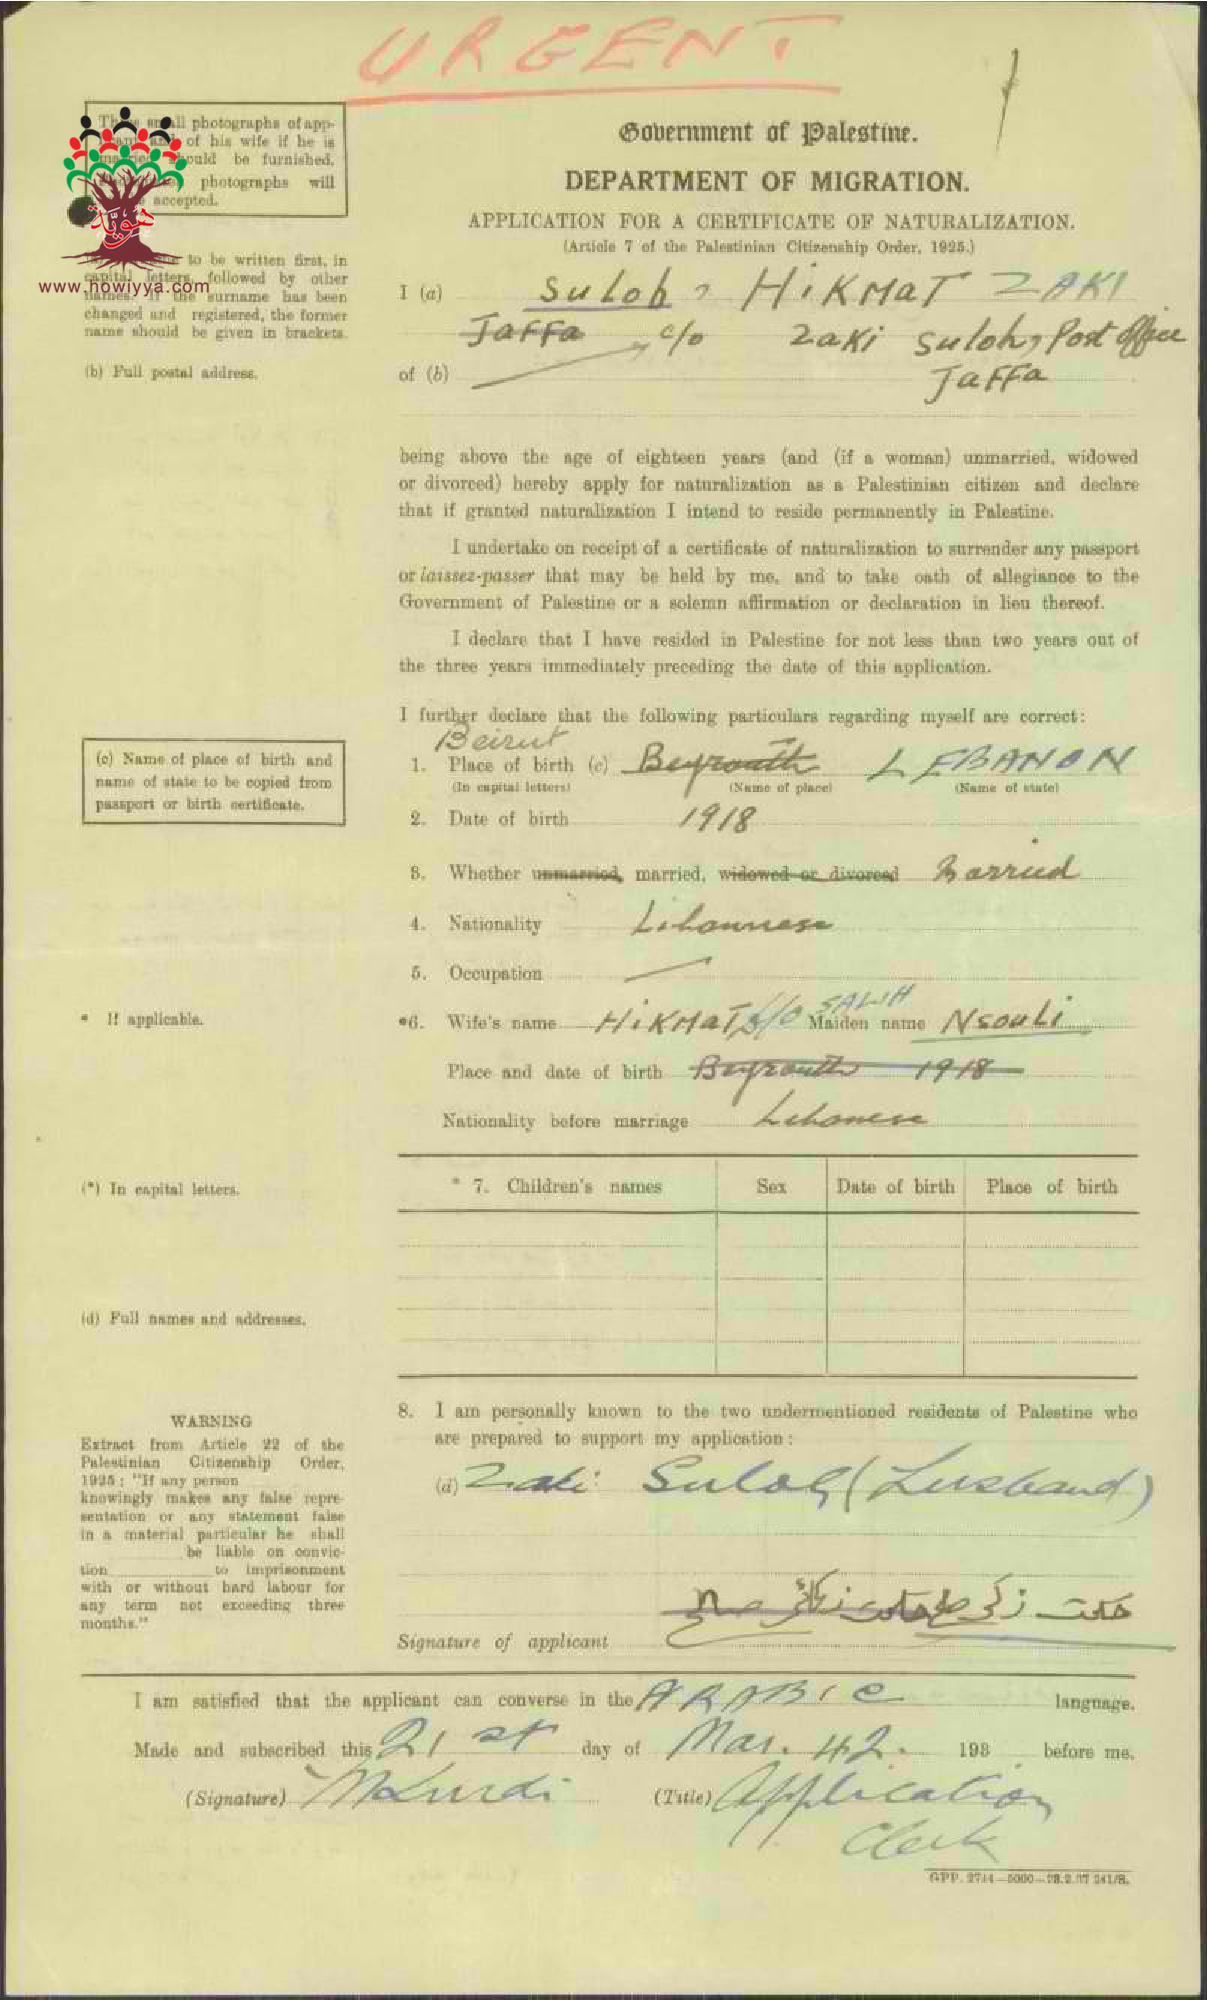 URGENT
Three small photographs of app-
licant and of his wife if he is
married should be furnished.
photographs will
accepted.
هوية
www.howiyya.com
to be written first, in
capital letters, followed by other
names. If the surname has been
changed and registered, the former
name should be given in brackets.
(b) Full postal address.
Government of Palestine.
DEPARTMENT OF MIGRATION.
APPLICATION FOR A CERTIFICATE OF NATURALIZATION.
(Article 7 of the Palestinian Citizenship Order, 1925.)
I (a) Suloh, HiKMaT ZAKI
Jaffa c/o Zaki Suloh, Post Office
of (b) Jaffa
being above the age of eighteen years (and (if a woman) unmarried, widowed
or divorced) hereby apply for naturalization as a Palestinian citizen and declare
that if granted naturalization I intend to reside permanently in Palestine.
I undertake on receipt of a certificate of naturalization to surrender any passport
or laissez-passer that may be held by me, and to take oath of allegiance to the
Government of Palestine or a solemn affirmation or declaration in lieu thereof.
I declare that I have resided in Palestine for not less than two years out of
the three years immediately preceding the date of this application.
I further declare that the following particulars regarding myself are correct:
(c) Name of place of birth and
name of state to be copied from
passport or birth certificate.
Beirut
1. Place of birth (c) Beyrouth LEBANON
(In capital letters) (Name of place) (Name of state)
2. Date of birth 1918
3. Whether unmarried, married, widowed or divorced Married
4. Nationality Libannese
5. Occupation
* If applicable.
*6. Wife's name HiKMaT d/o SALIH Maiden name Nsouli
Place and date of birth Beyrouth 1918
Nationality before marriage Lebanese
(*) In capital letters.
* 7. Children's names Sex Date of birth Place of birth
(d) Full names and addresses.
8. I am personally known to the two undermentioned residents of Palestine who
are prepared to support my application:
(d) Zaki Suloh (husband)
WARNING
Extract from Article 22 of the
Palestinian Citizenship Order,
1925: "If any person
knowingly makes any false repre-
sentation or any statement false
in a material particular he shall
be liable on convic-
tion to imprisonment
with or without hard labour for
any term not exceeding three
months."
حكمت زكي
Signature of applicant
I am satisfied that the applicant can converse in the ARABIC language.
Made and subscribed this 21st day of Mar. 42. 193 before me.
(Signature) (Title) Application
Clerk
GPP. 2744—5000—28.2.37 241/S.